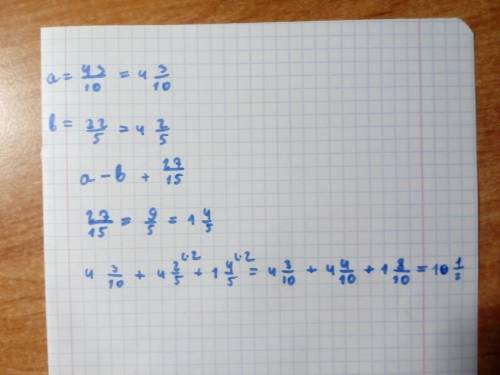 a = 43/10 = 4 3/10
b = 22/5 = 4 2/5
a - b + 27/15
27/15 = 9/5 = 1 4/5
4 3/10 + 4 2/5^(·2) + 1 4/5^(·2) = 4 3/10 + 4 4/10 + 1 8/10 = 10 1/2